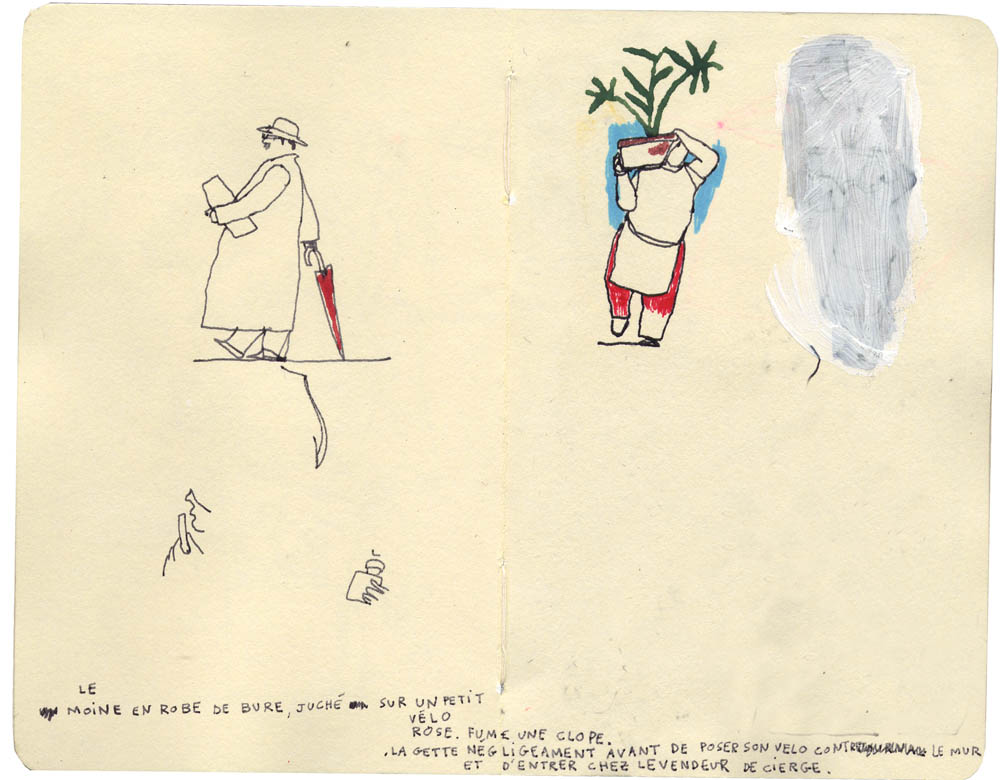 LE
MOINE EN ROBE DE BURE, JUCHÉ SUR UN PETIT
VÉLO
ROSE. FUME UNE CLOPE.
LA GETTE NÉGLIGEAMENT AVANT DE POSER SON VELO CONTRE LE MUR
ET D'ENTRER CHEZ LE VENDEUR DE CIERGE.